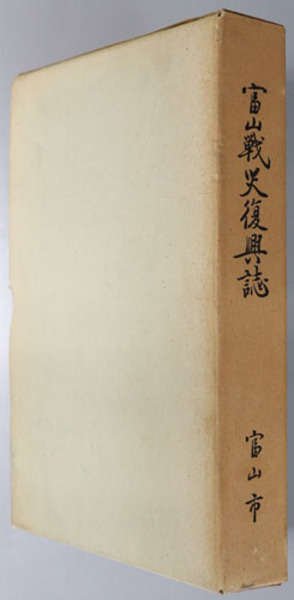 富山戰災復興誌
富山市